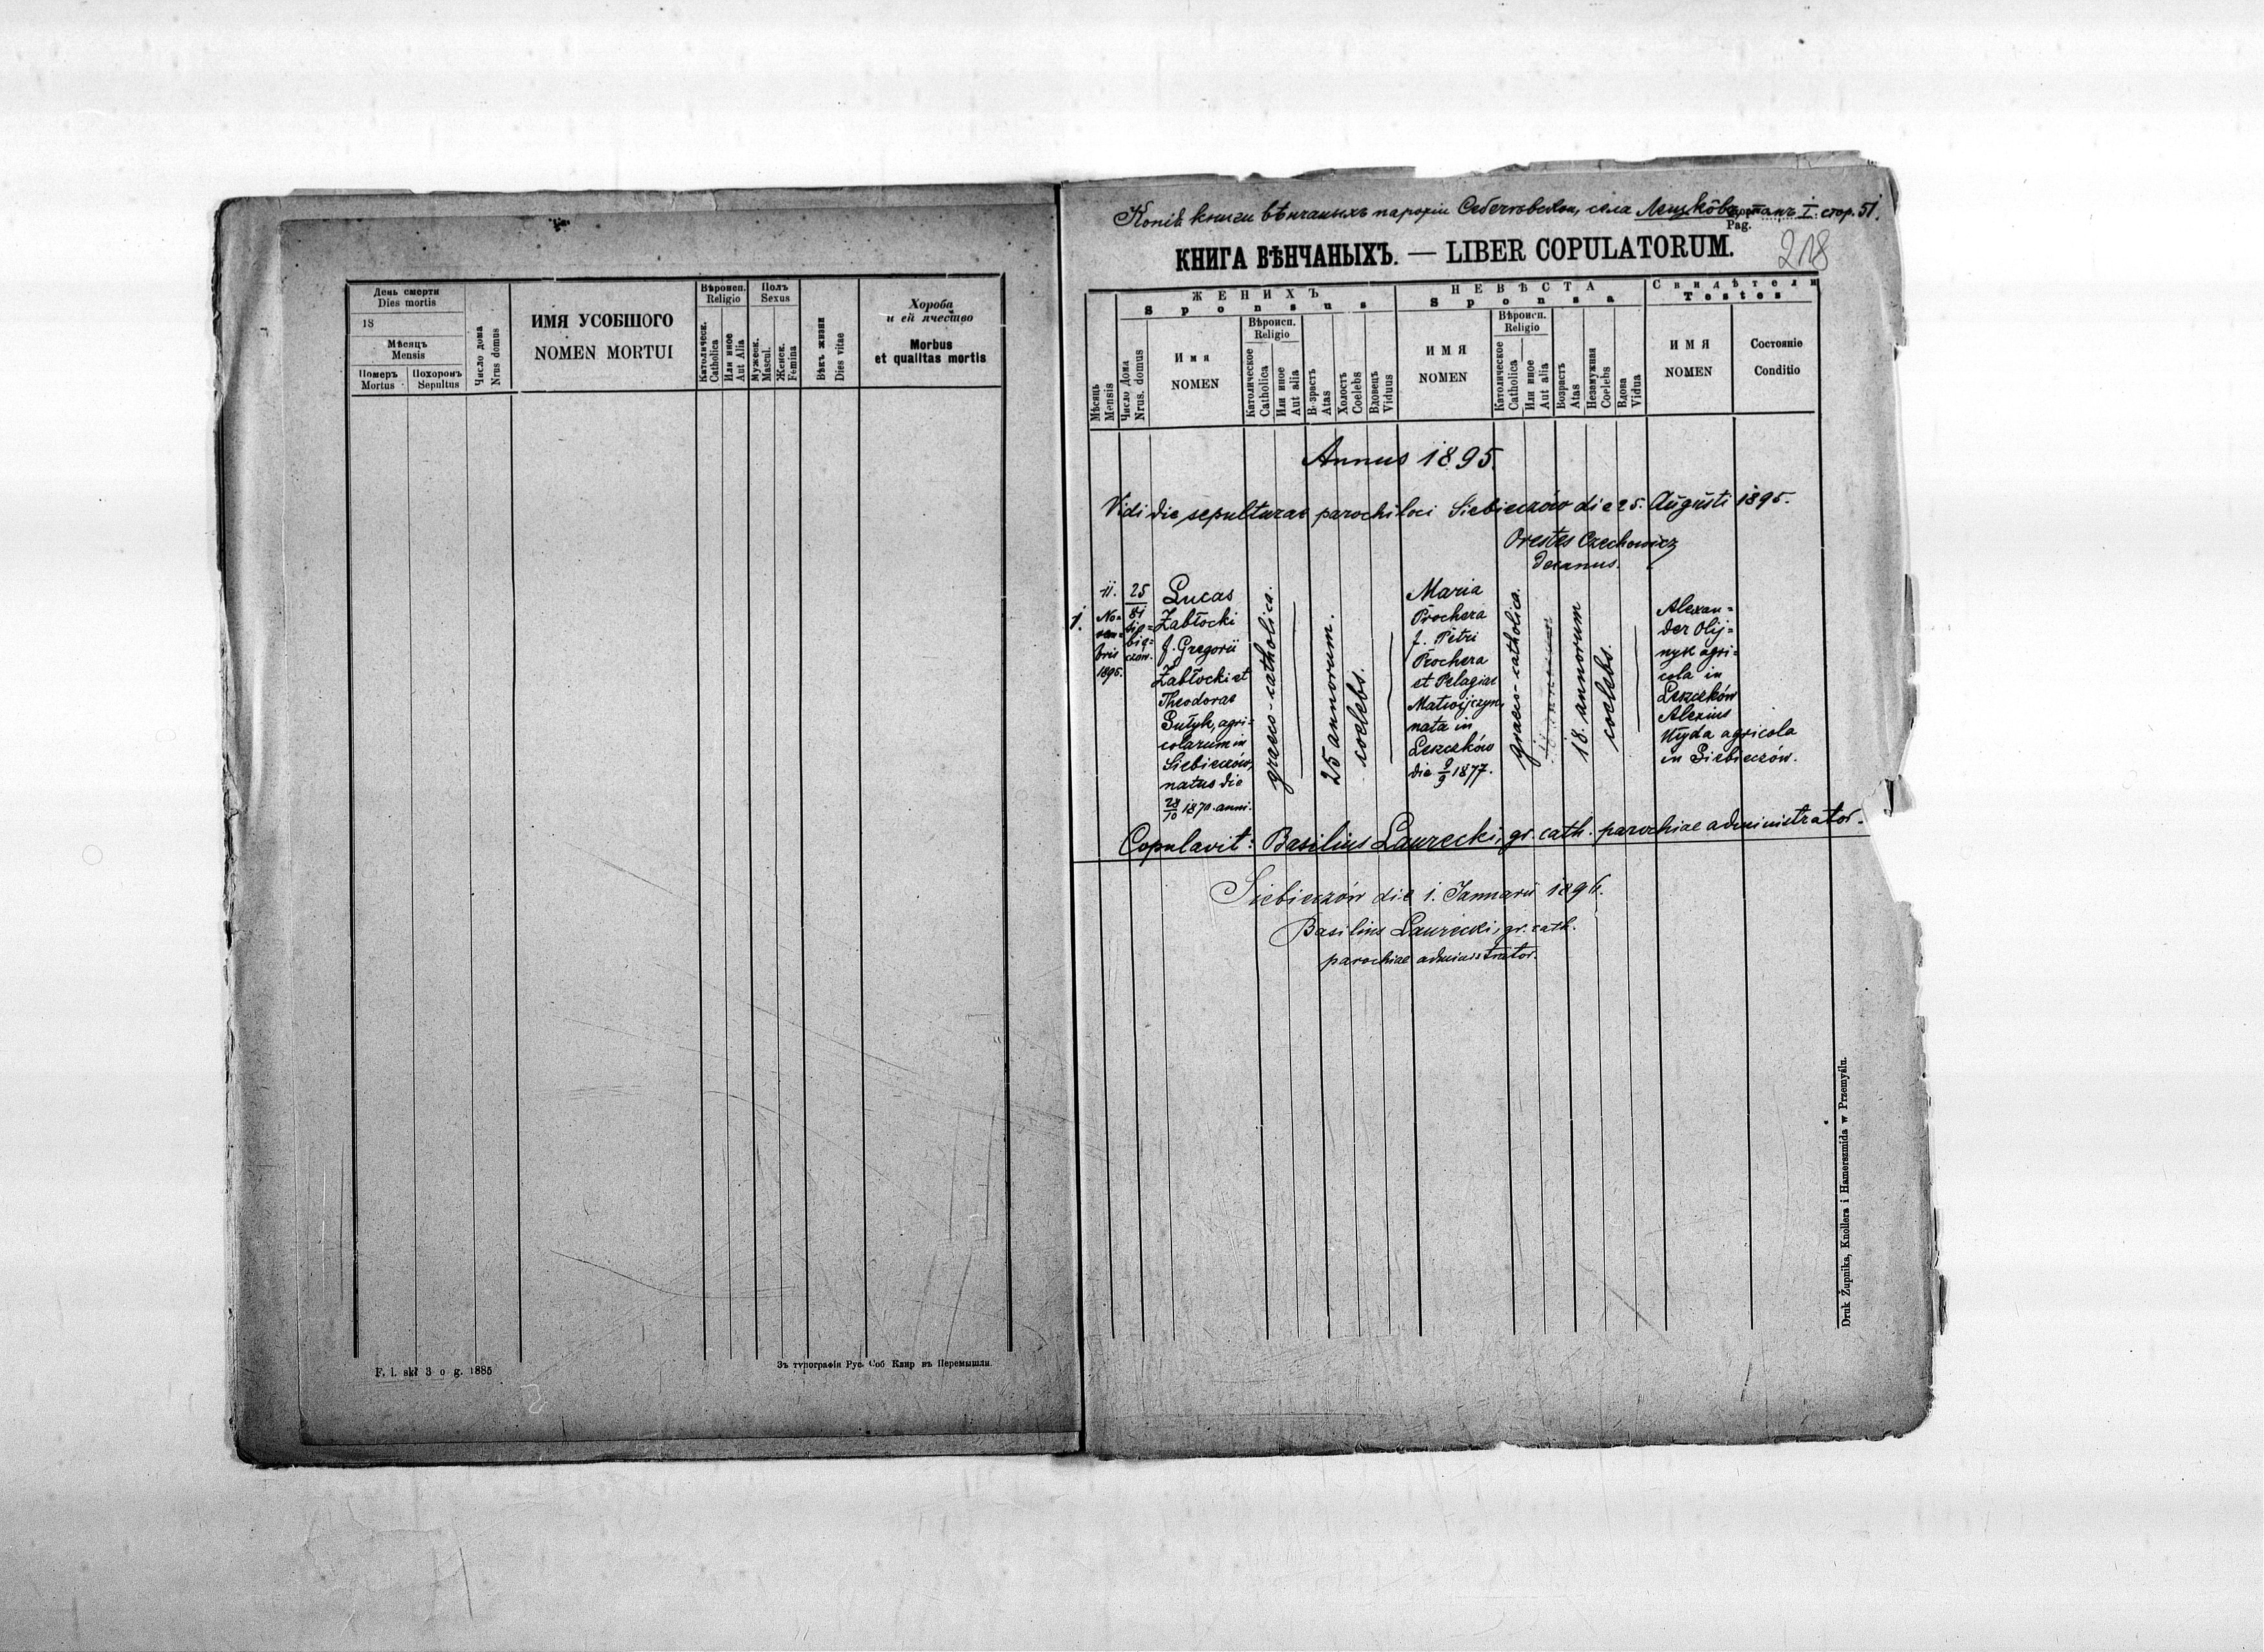 День смерти
Dies mortis
18
Мѣсяцъ
Mensis
Померъ
Mortus
Похоронъ
Sepultus
Число дома
Nrus domus
ИМЯ УСОБШОГО
NOMEN MORTUI
Вѣроисп.
Religio
Католическ.
Catholica
Или иное
Aut Alia
Полъ
Sexus
Мужеск.
Mascul.
Женск.
Femina
Вѣкъ жизни
Dies vitae
Хороба
и ей ячество
Morbus
et qualitas mortis
F. l. skł 3 o g. 1885
Зъ типографіи Рус. Соб Клир въ Перемышли.
Копія книги вѣнчаныхъ парохіи Себечовской, села стор. 51.
Pag.
218
КНИГА ВѢНЧАНЫХЪ. — LIBER COPULATORUM.
Мѣсяць
Mensis
Число Дома
Nrus. domus
ЖЕНИХЪ
Sponsus
Имя
NOMEN
Вѣроисп.
Religio
Католическое
Catholica
Или иное
Aut alia
Возрасть
Atas
Холость
Coelebs
Вдовець
Viduus
НЕВѢСТА
Sponsa
ИМЯ
NOMEN
Вѣроисп.
Religio
Католическое
Catholica
Или иное
Aut alia
Возрасть
Atas
Незамужная
Coelebs
Вдова
Vidua
Свидѣтели
Testes
ИМЯ
NOMEN
Состояніе
Conditio
Annus 1895.
Vidi die sepulturae parochi loci Siebieczów die 25. Augusti 1895.
Orestes Czechowicz
decanus.
1.
11.
No=
vem=
bris
1895.
25
81
Sie=
bie=
czów.
Lucas
Zabłocki
f. Gregorii
Zabłocki et
Theodorae
Sutyk, agri=
colarum in
Siebieczów,
natus die
28/10 1870. anni.
graeco-catholica.
25 annorum.
coelebs.
Maria
Prochera
f. Petri
Prochera
et Pelagiae
Matwijczyn,
nata in
Leszczków
die 9/9 1877.
graeco-catholica.
18. annorum
coelebs.
Alexan=
der Olij=
nyk agri=
cola in
Leszczków
Alexius
Kłyda agricola
in Siebieczów.
Copulavit: Basilius Laurecki, gr. cath. parochiae administrator.
Siebieczów die 1. Januarii 1896.
Basilius Laurecki, gr. cath.
parochiae administrator.
Druk Żupnika, Knollera i Hamerszmida w Przemyślu.